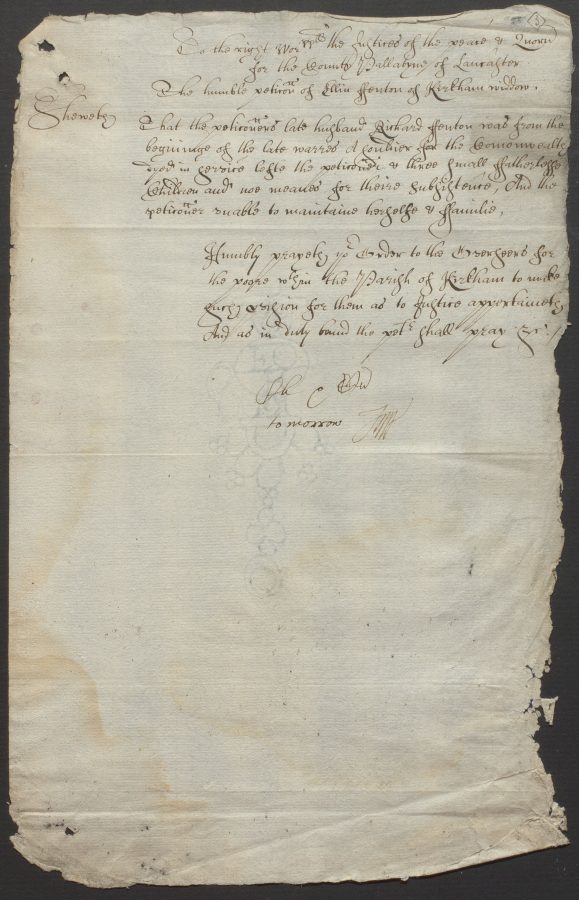 (3)
To the right Wor:ll the Justices of the peace & Quoru
for the County Pallatyne of Lancaster
The humble peticon of Ellin ffenton of Kirkham widdow.
Sheweth
That the peticoners late husband Richard ffenton was from the
begininge of the late warres A souldier for the Comonwealth
dyed in service lefte the peticoner & three small ffatherlesse
Children and noe meanes for theire subsistence, And the
peticoner unable to maintaine herselfe & ffamilie,
Humbly prayeth yor Order to the Overseers for
the poore wthin the Parish of Kirkham to make
such pvision for them as to Justice appertaineth
And as in duty bound the petr shall pray &c.
tomorrow